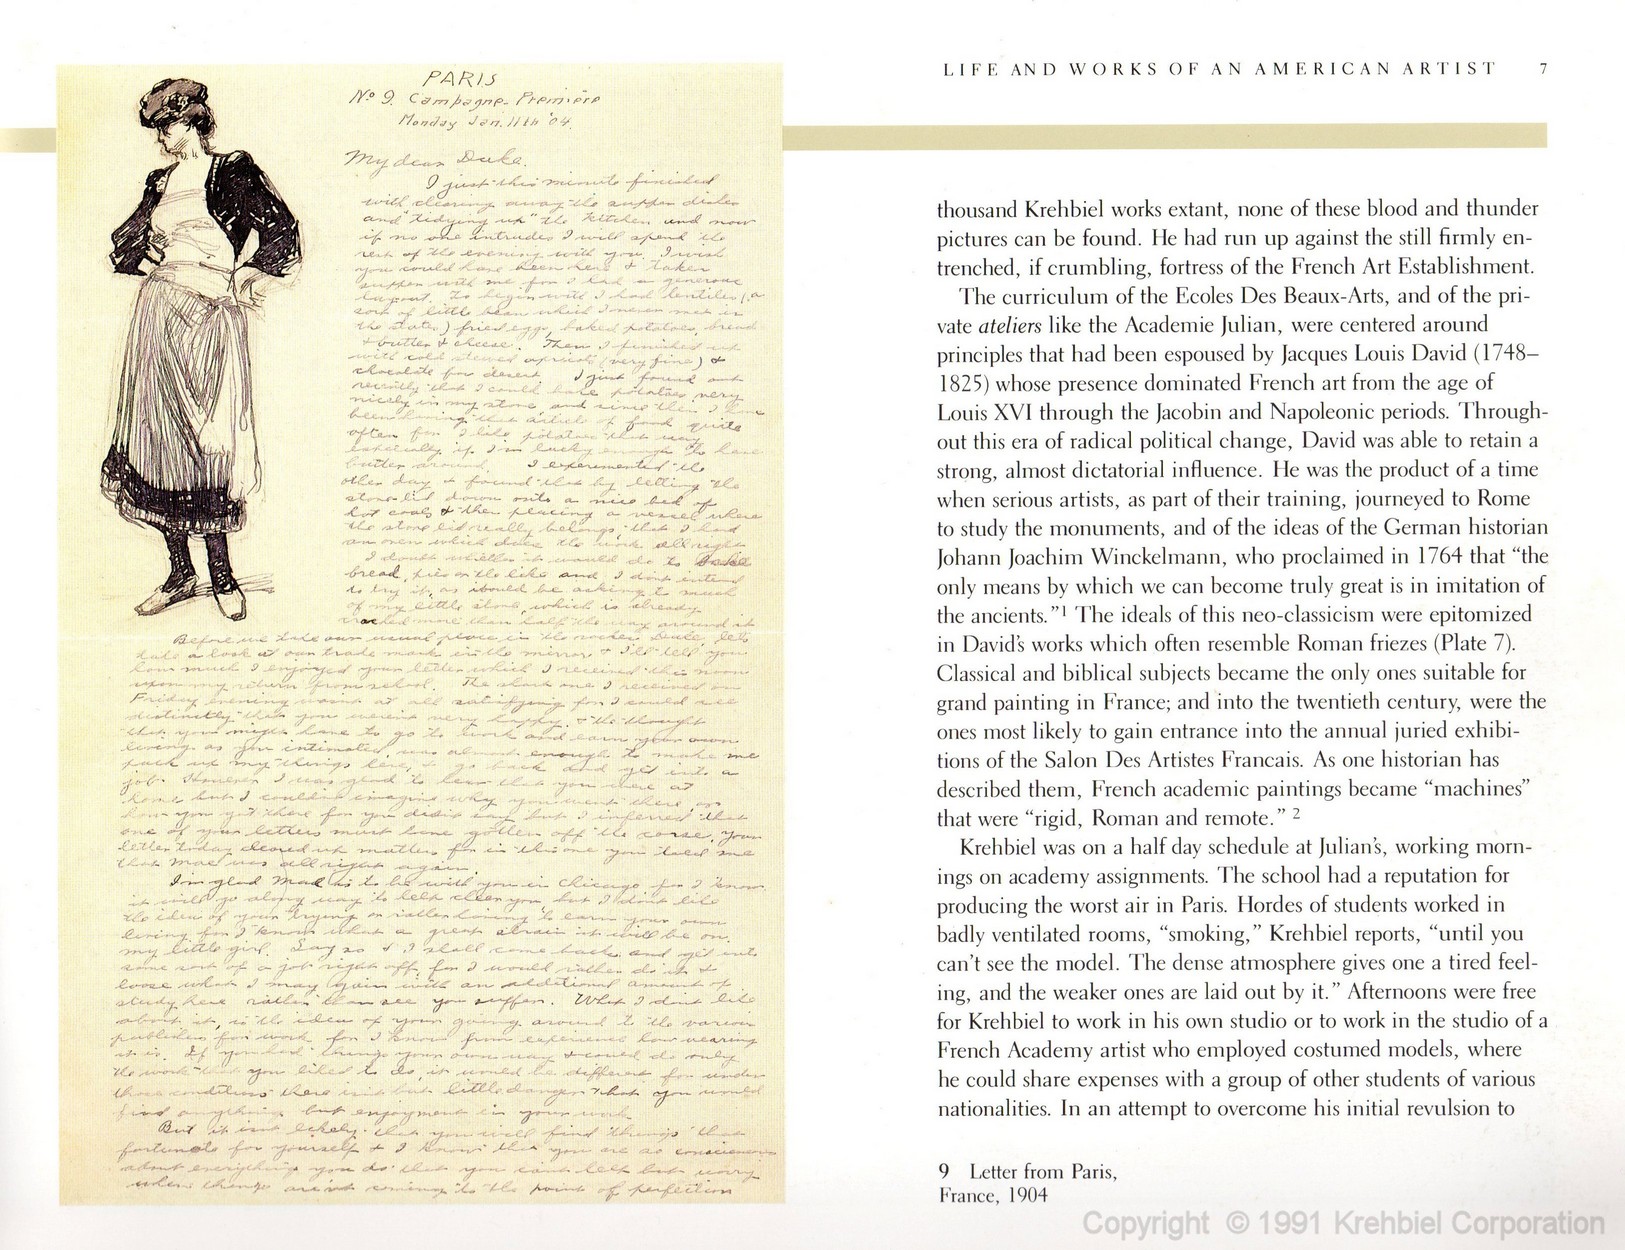 PARIS
No 9. Campagne-Première
Monday Jan. 11th '04.
My dear Duke.
I just this minute finished
with clearing away the supper dishes
and "tidying up" the kitchen and now
if no one intrudes I will spend the
rest of the evening with you. I wish
you could have been here & taken
supper with me for I had a generous
layout. To begin with I had lentiles (a
sort of little bean which I never met in
the states) fried eggs, baked potatoes, bread
& butter & cheese. Then I finished up
with cold stewed apricots (very fine) &
chocolate for desert. I just found out
recently that I could bake potatoes very
nicely in my stove and since then I have
been having that article of food quite
often for I like potatoes that way
especially if I'm lucky enough to have
butter around. I experimented the
other day & found that by letting the
stove lid down onto a nice bed of
hot coals & then placing a vessel where
the stove lid really belongs, that I had
an oven which does the work all right
I doubt whether it would do to bake
bread, pies or the like and I don't intend
to try it, as it would be asking to much
of my little stove, which is already
cracked more than half the way around it
Before we take our usual place in the rocker Duke, lets
take a look at our trade mark in the mirror & I'll tell you
how much I enjoyed your letter which I received this noon
upon my return from school. The short one I received on
Friday evening wasn't at all satisfying for I could see
distinctly that you weren't very happy & the thought
that you might have to go to work and earn your own
living as you intimated, was almost enough to make me
pack up my things here, & go back and get into a
job. However I was glad to hear that you were at
home but I couldn't imagine why you went there, or
how you got there for you didn't say but I inferred that
one of your letters must have gotten off the course. Your
letter today cleared up matters for in this one you told me
that Mae was all right again.
I'm glad Mae is to be with you in Chicago for I know
it will go a long way to help cheer you but I don't like
the idea of your trying or rather having to earn your own
living for I know what a great strain it will be on
my little girl. Say so & I shall come back and get into
some sort of a job right off, for I would rather do it &
loose what I may gain with an additional amount of
study here rather than see you suffer. What I don't like
about it, is the idea of your going around to the various
publishers for work for I know from experience how wearing
it is. If you had things your own way & could do only
the work that you liked to do, it would be different for under
those conditions there isn't but little danger that you would
find anything but enjoyment in your work
But it isn't likely that you will find things that
fortunate for yourself & I know that you are so conscientious
about everything you do that you can't help but worry
when things aren't coming to the point of perfection
LIFE AND WORKS OF AN AMERICAN ARTIST 7
thousand Krehbiel works extant, none of these blood and thunder
pictures can be found. He had run up against the still firmly en-
trenched, if crumbling, fortress of the French Art Establishment.
The curriculum of the Ecoles Des Beaux-Arts, and of the pri-
vate ateliers like the Academie Julian, were centered around
principles that had been espoused by Jacques Louis David (1748–
1825) whose presence dominated French art from the age of
Louis XVI through the Jacobin and Napoleonic periods. Through-
out this era of radical political change, David was able to retain a
strong, almost dictatorial influence. He was the product of a time
when serious artists, as part of their training, journeyed to Rome
to study the monuments, and of the ideas of the German historian
Johann Joachim Winckelmann, who proclaimed in 1764 that “the
only means by which we can become truly great is in imitation of
the ancients.”1 The ideals of this neo-classicism were epitomized
in David's works which often resemble Roman friezes (Plate 7).
Classical and biblical subjects became the only ones suitable for
grand painting in France; and into the twentieth century, were the
ones most likely to gain entrance into the annual juried exhibi-
tions of the Salon Des Artistes Francais. As one historian has
described them, French academic paintings became “machines”
that were “rigid, Roman and remote.” 2
Krehbiel was on a half day schedule at Julian's, working morn-
ings on academy assignments. The school had a reputation for
producing the worst air in Paris. Hordes of students worked in
badly ventilated rooms, “smoking,” Krehbiel reports, “until you
can't see the model. The dense atmosphere gives one a tired feel-
ing, and the weaker ones are laid out by it.” Afternoons were free
for Krehbiel to work in his own studio or to work in the studio of a
French Academy artist who employed costumed models, where
he could share expenses with a group of other students of various
nationalities. In an attempt to overcome his initial revulsion to
9 Letter from Paris,
France, 1904
Copyright © 1991 Krehbiel Corporation